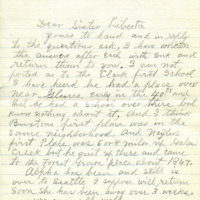 Dear Sister Liberta
Yours to hand and in reply
to the questions ask, I have written
the answers after each with one and
return them to you. I am not
posted as to the Clark first School
I have heard he had a place over
near Elmer early in the 40s and
that he had a School over there but
know nothing about it, and I think
Buxtons first place was in the
same neighborhood. And Naylors
first Place was 6 or 8 miles up Gales
Creek but he quit up there and came
to the Forest Grove place about 1847.
Alpha has been and still is
over to Seattle I suppose will return
soon. She has been away over 3 weeks